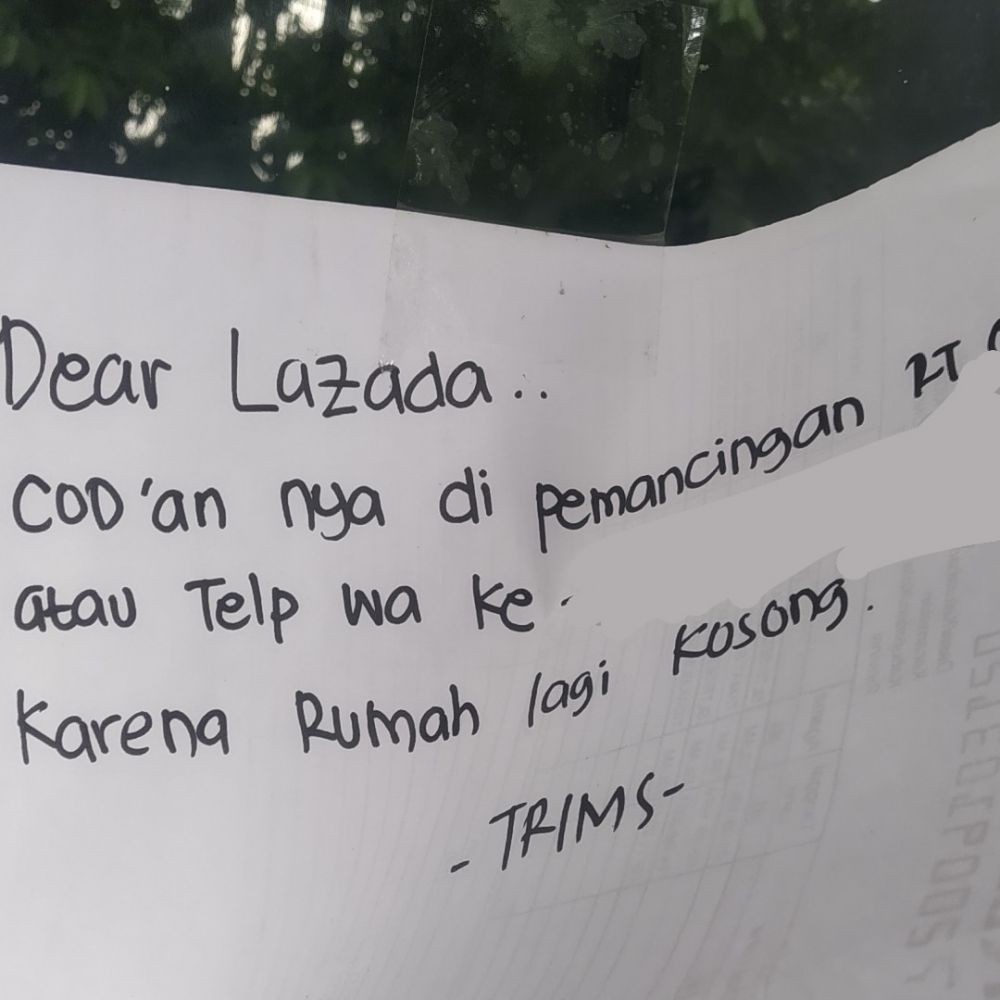 Dear Lazada..
COD'an nya di pemancingan RT
atau Telp wa ke
Karena Rumah lagi kosong.
-TRIMS-